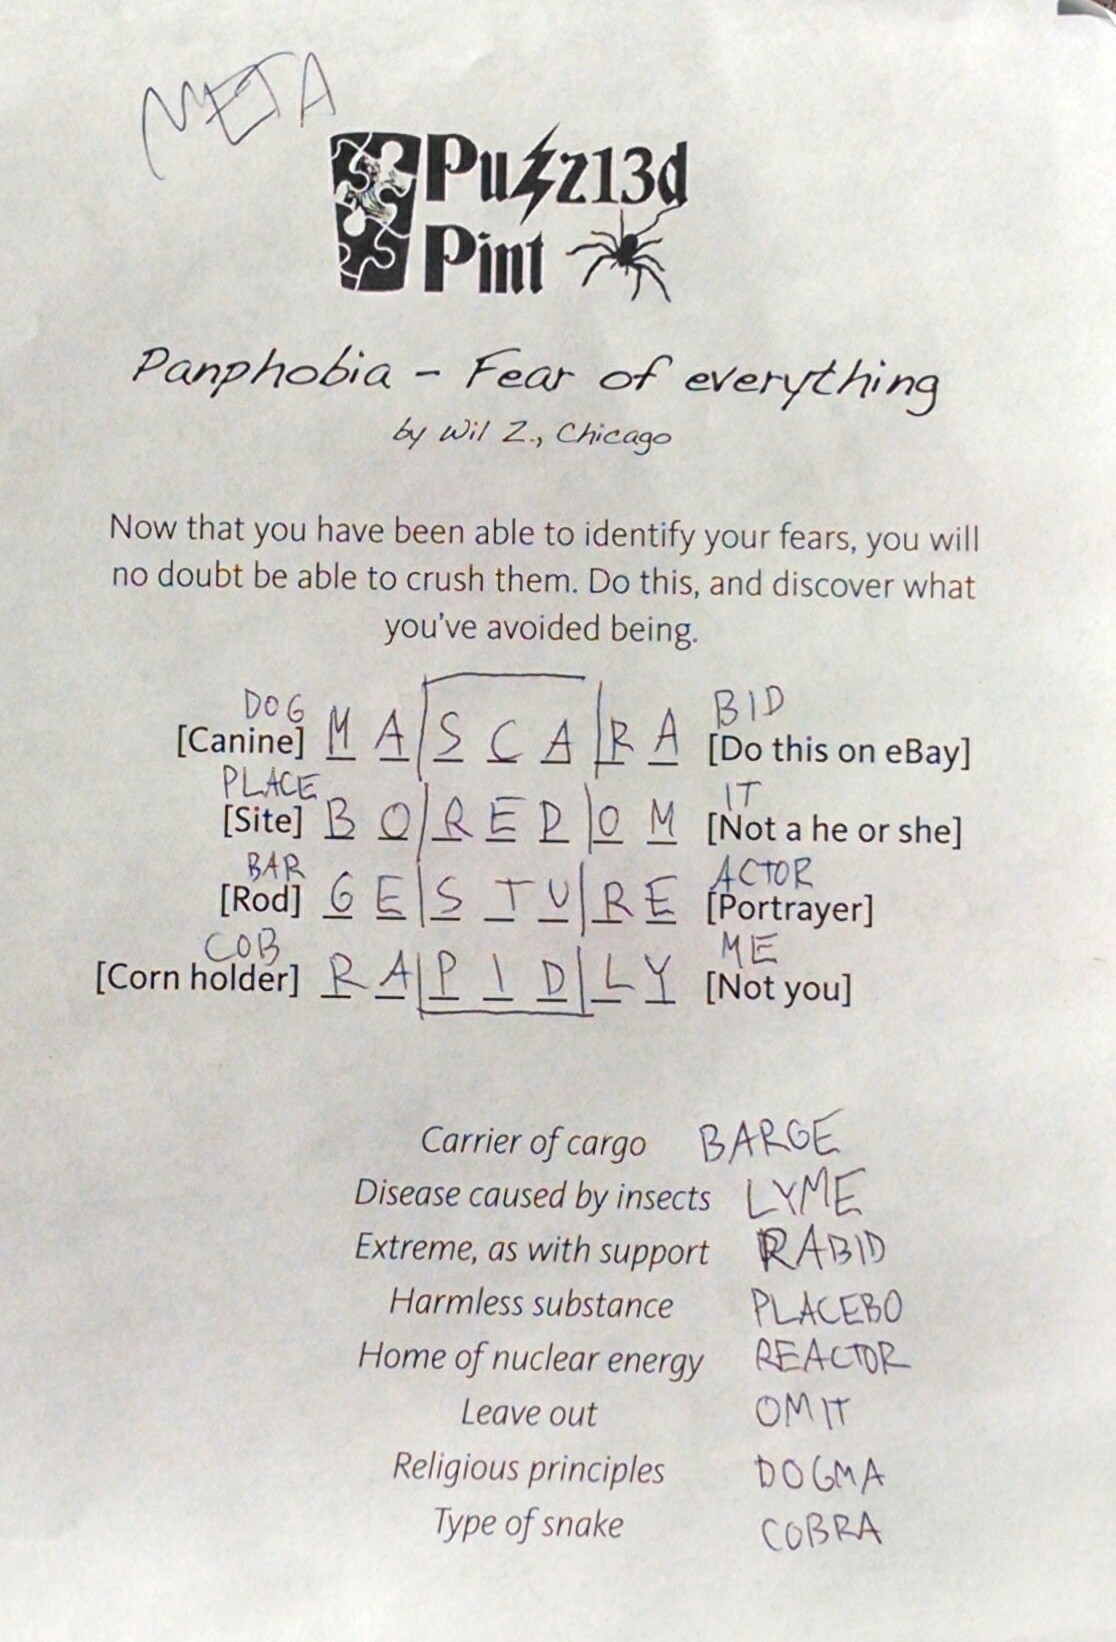 META
Puzz13d
Pint
Panphobia - Fear of everything
by Wil Z., Chicago
Now that you have been able to identify your fears, you will
no doubt be able to crush them. Do this, and discover what
you've avoided being.
DOG BID
[Canine] M A S C A R A [Do this on eBay]
PLACE IT
[Site] B O R E D O M [Not a he or she]
BAR ACTOR
[Rod] G E S T U R E [Portrayer]
COB ME
[Corn holder] R A P I D L Y [Not you]
Carrier of cargo BARGE
Disease caused by insects LYME
Extreme, as with support RABID
Harmless substance PLACEBO
Home of nuclear energy REACTOR
Leave out OMIT
Religious principles DOGMA
Type of snake COBRA